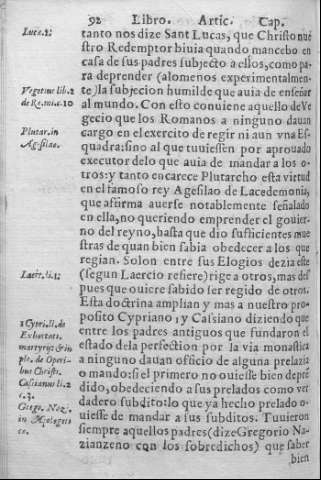 92 Libro. Artic. Cap.
Lucæ.2:
tanto nos dize Sant Lucas, que Christo nue
stro Redemptor biuia quando mancebo en
casa de sus padres subjecto a ellos, como pa-
ra deprender (alomenos experimentalmen-
te) la subjecion humil de que auia de enseñar
al mundo. Con esto conuiene aquello de Ve
gecio que los Romanos a ninguno dauan
cargo en el exercito de regir ni aun vna Es-
quadra: sino al que tuuiessen por aprouado
executor de lo que auia de mandar a los o-
tros: y tanto encarece Plutarcho esta virtud
en el famoso rey Agesilao de Lacedemonia,
que affirma auerse notablemente señalado
en ella, no queriendo emprender el gouier-
no del reyno, hasta que dio sufficientes mue
stras de quan bien sabia obedecer a los que
regian. Solon entre sus Elogios dezia este
(segun Laercio refiere) rige a otros, mas des
pues que ouiere sabido ser regido de otros.
Esta doctrina amplian y mas a nuestro pro-
posito Cypriano, y Cassiano diziendo que
entre los padres antiguos que fundaron el
estado de la perfection por la via monastica
a ninguno dauan officio de alguna prelazia
o mando: si el primero no ouiesse bien depre
dido, obedeciendo a sus prelados como ver
dadero subdito: lo que ya hecho prelado o-
uiesse de mandar a sus subditos. Tuuieron
siempre aquellos padres (dize Gregorio Na-
zianzeno con los sobredichos) que saber
bien
Vegetius lib.2
de Re.mi.c.10
Plutar. in
Agesilao.
Laër. li.1:
1 Cypri. li. de
Exhortat.
martyrij: & in
de Operi-
bus Christi.
Cassianus li.2
c.3.
Grego. Naz.
in Apologeti
co.